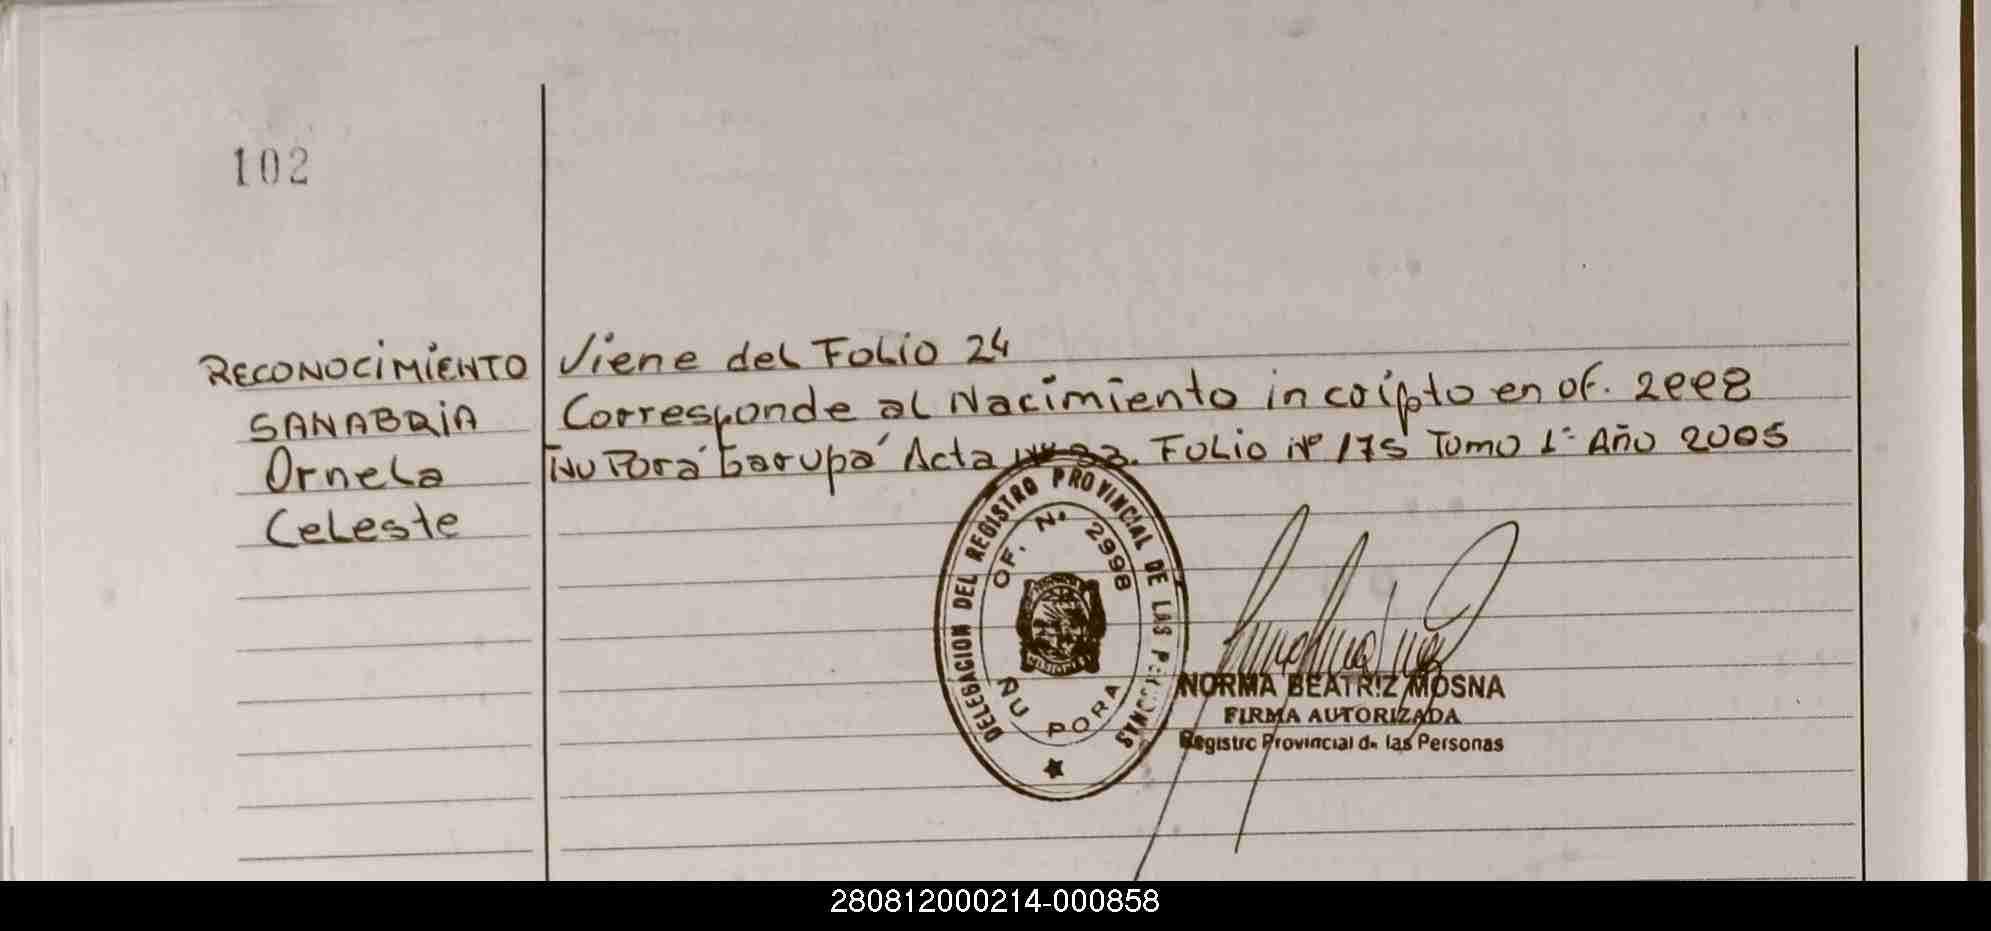 102
RECONOCIMIENTO
SANABRIA
Ornela
Celeste
Viene del Folio 24
Corresponde al Nacimiento incripto en of.
Ñu Porá Garupá Acta Nº 33. Folio Nº 175 Tomo 1º Año 2005
DELEGACION DEL REGISTRO PROVINCIAL DE LAS PERSONAS
OF. Nº 2998
ÑU PORA
MISIONES
NORMA BEATRIZ MOSNA
FIRMA AUTORIZADA
Registro Provincial de las Personas
280812000214-000858